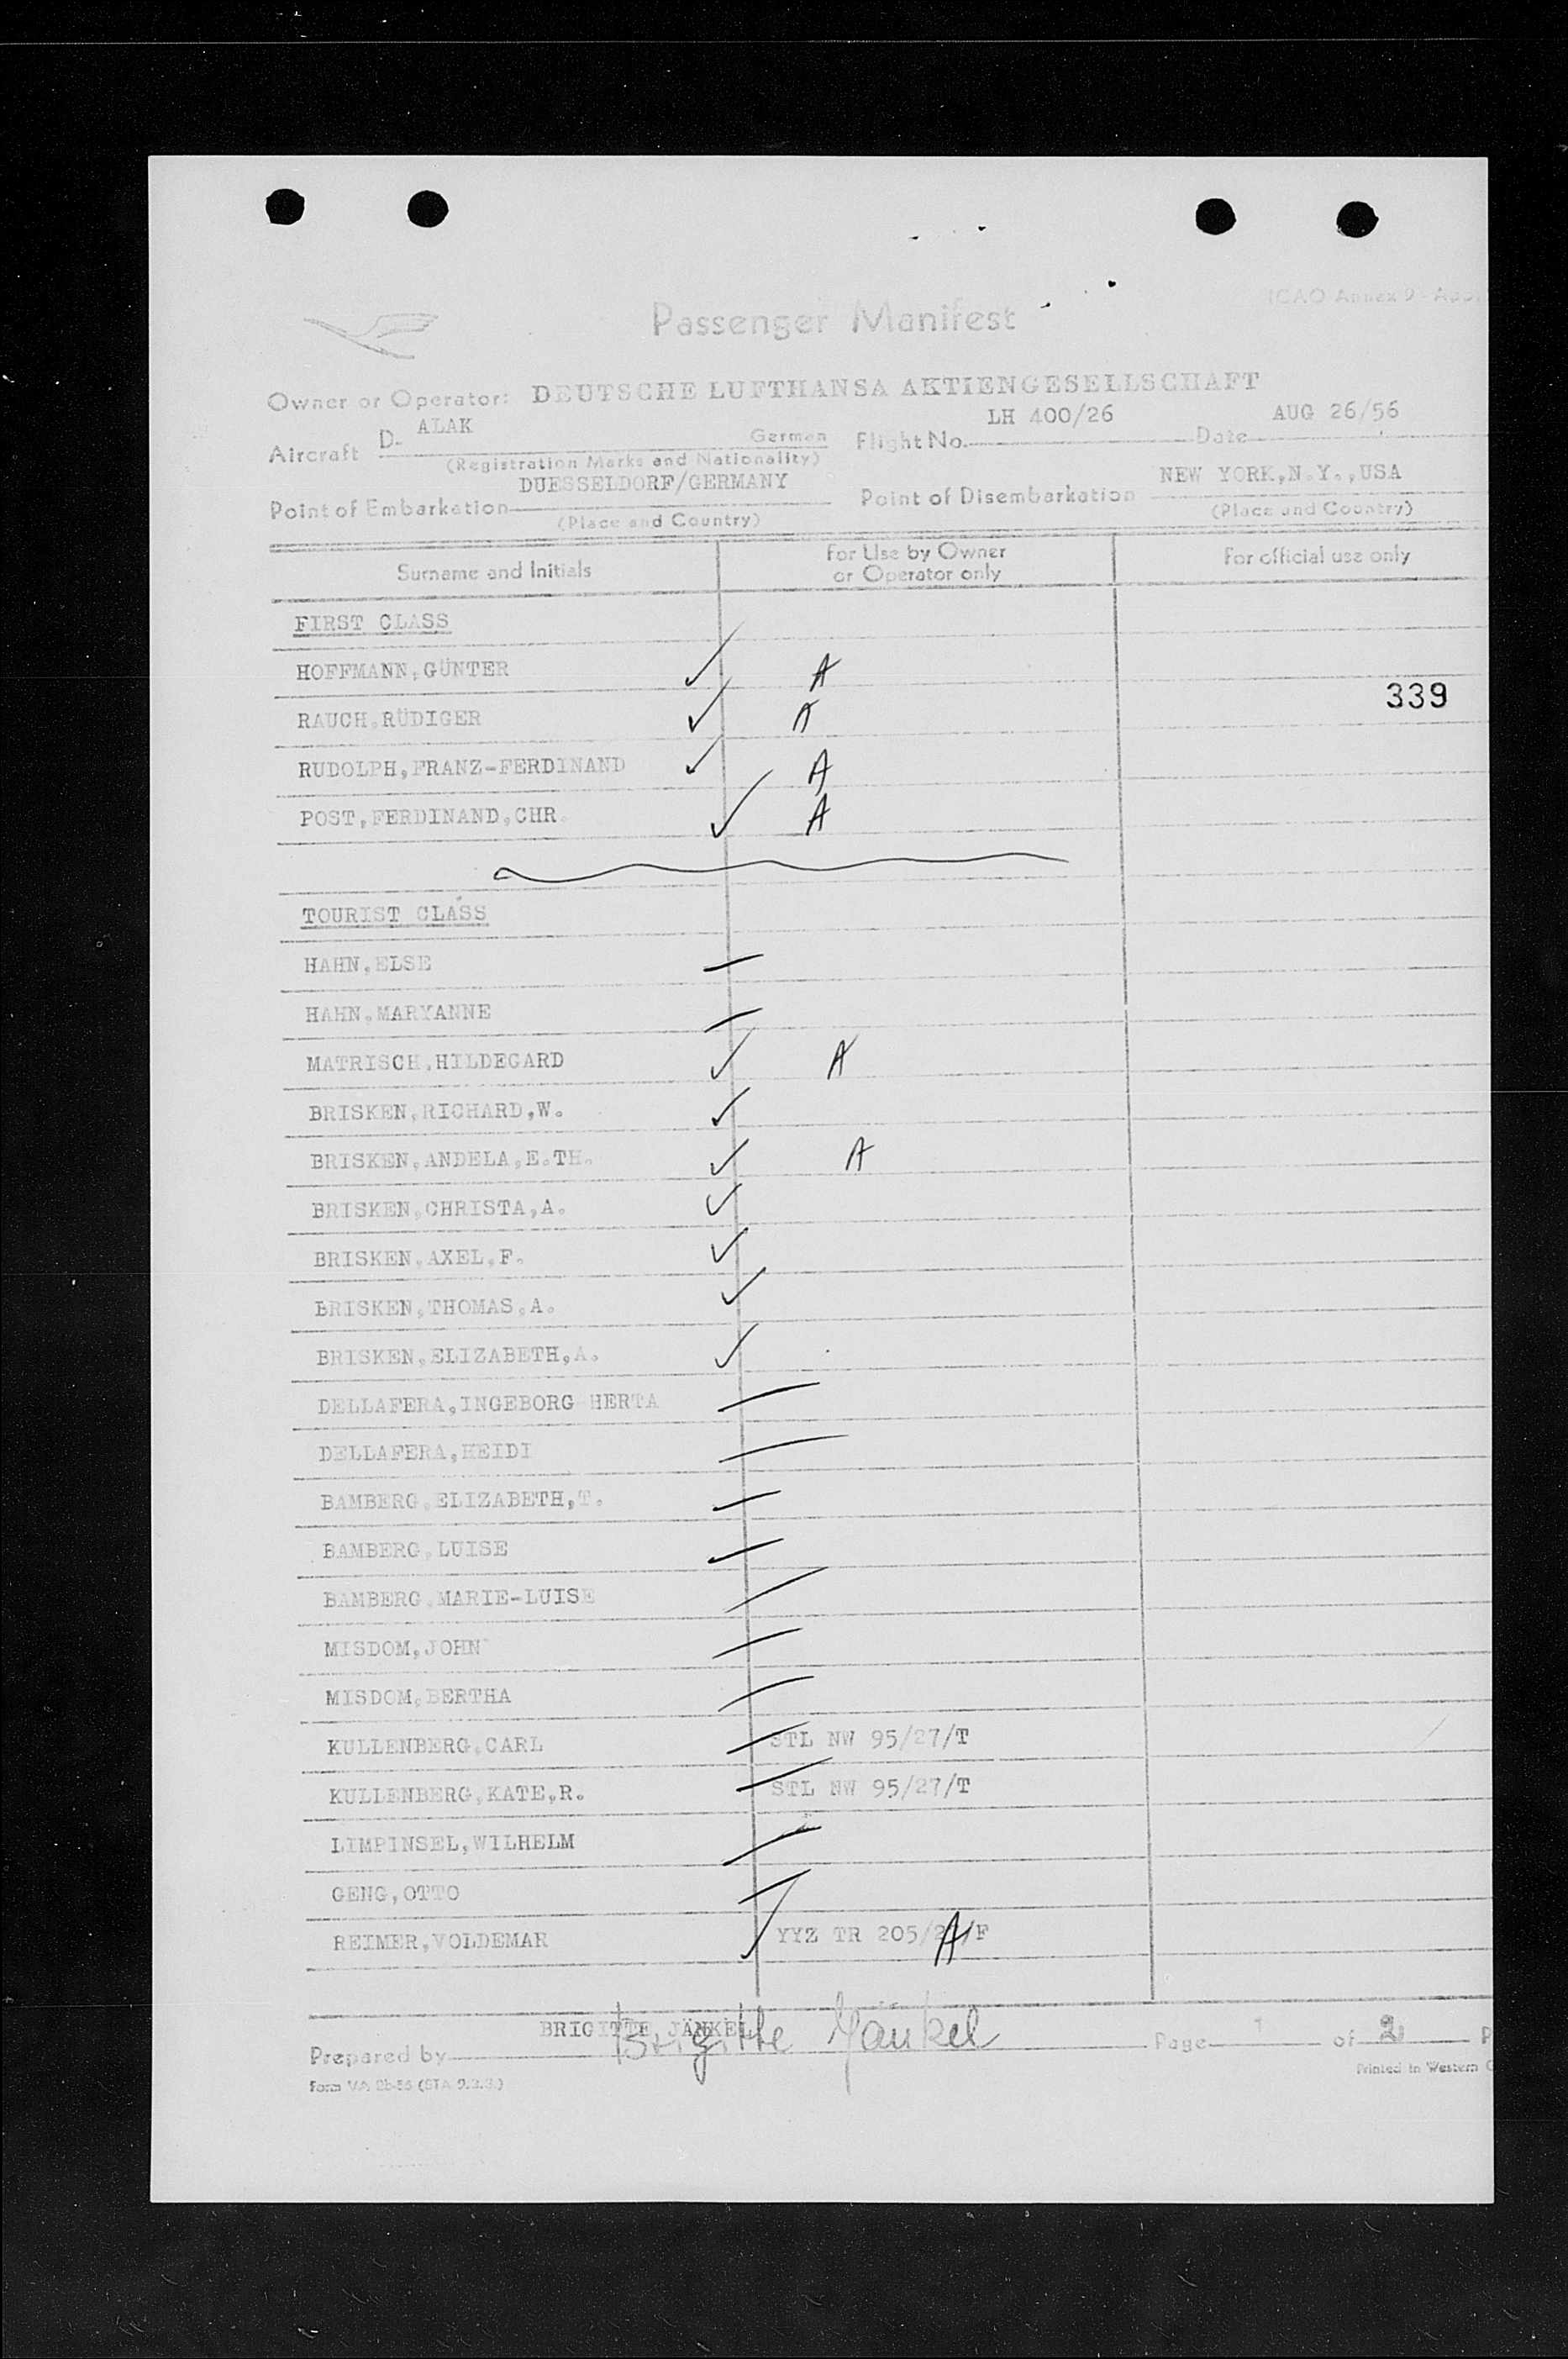 ICAO Annex 9 - App.
Passenger Manifest
Owner or Operator: DEUTSCHE LUFTHANSA AKTIENGESELLSCHAFT
Aircraft D- ALAK German Flight No. LH 400/26 Date AUG 26/56
(Registration Marks and Nationality)
Point of Embarkation DUESSELDORF/GERMANY Point of Disembarkation NEW YORK,N.Y.,USA
(Place and Country) (Place and Country)
Surname and Initials For Use by Owner or Operator only For official use only
FIRST CLASS
HOFFMANN,GÜNTER ✓ A
339
RAUCH,RÜDIGER ✓ A
RUDOLPH,FRANZ-FERDINAND ✓ A
POST,FERDINAND,CHR. ✓ A
TOURIST CLASS
HAHN,ELSE
HAHN,MARYANNE
MATRISCH,HILDEGARD ✓ A
BRISKEN,RICHARD,W. ✓
BRISKEN,ANDELA,E.TH. ✓ A
BRISKEN,CHRISTA,A. ✓
BRISKEN,AXEL,F. ✓
BRISKEN,THOMAS,A. ✓
BRISKEN,ELIZABETH,A. ✓
DELLAFERA,INGEBORG HERTA
DELLAFERA,HEIDI
BAMBERG,ELIZABETH,T.
BAMBERG,LUISE
BAMBERG,MARIE-LUISE
MISDOM,JOHN
MISDOM,BERTHA
KULLENBERG,CARL STL NW 95/27/T
KULLENBERG,KATE,R. STL NW 95/27/T
LIMPINSEL,WILHELM
GENG,OTTO
REIMER,VOLDEMAR ✓ YYZ TR 205/ A /F
Prepared by BRIGITTE JÄNKEL Brigitte Jänkel Page 1 of 2 P
Printed in Western